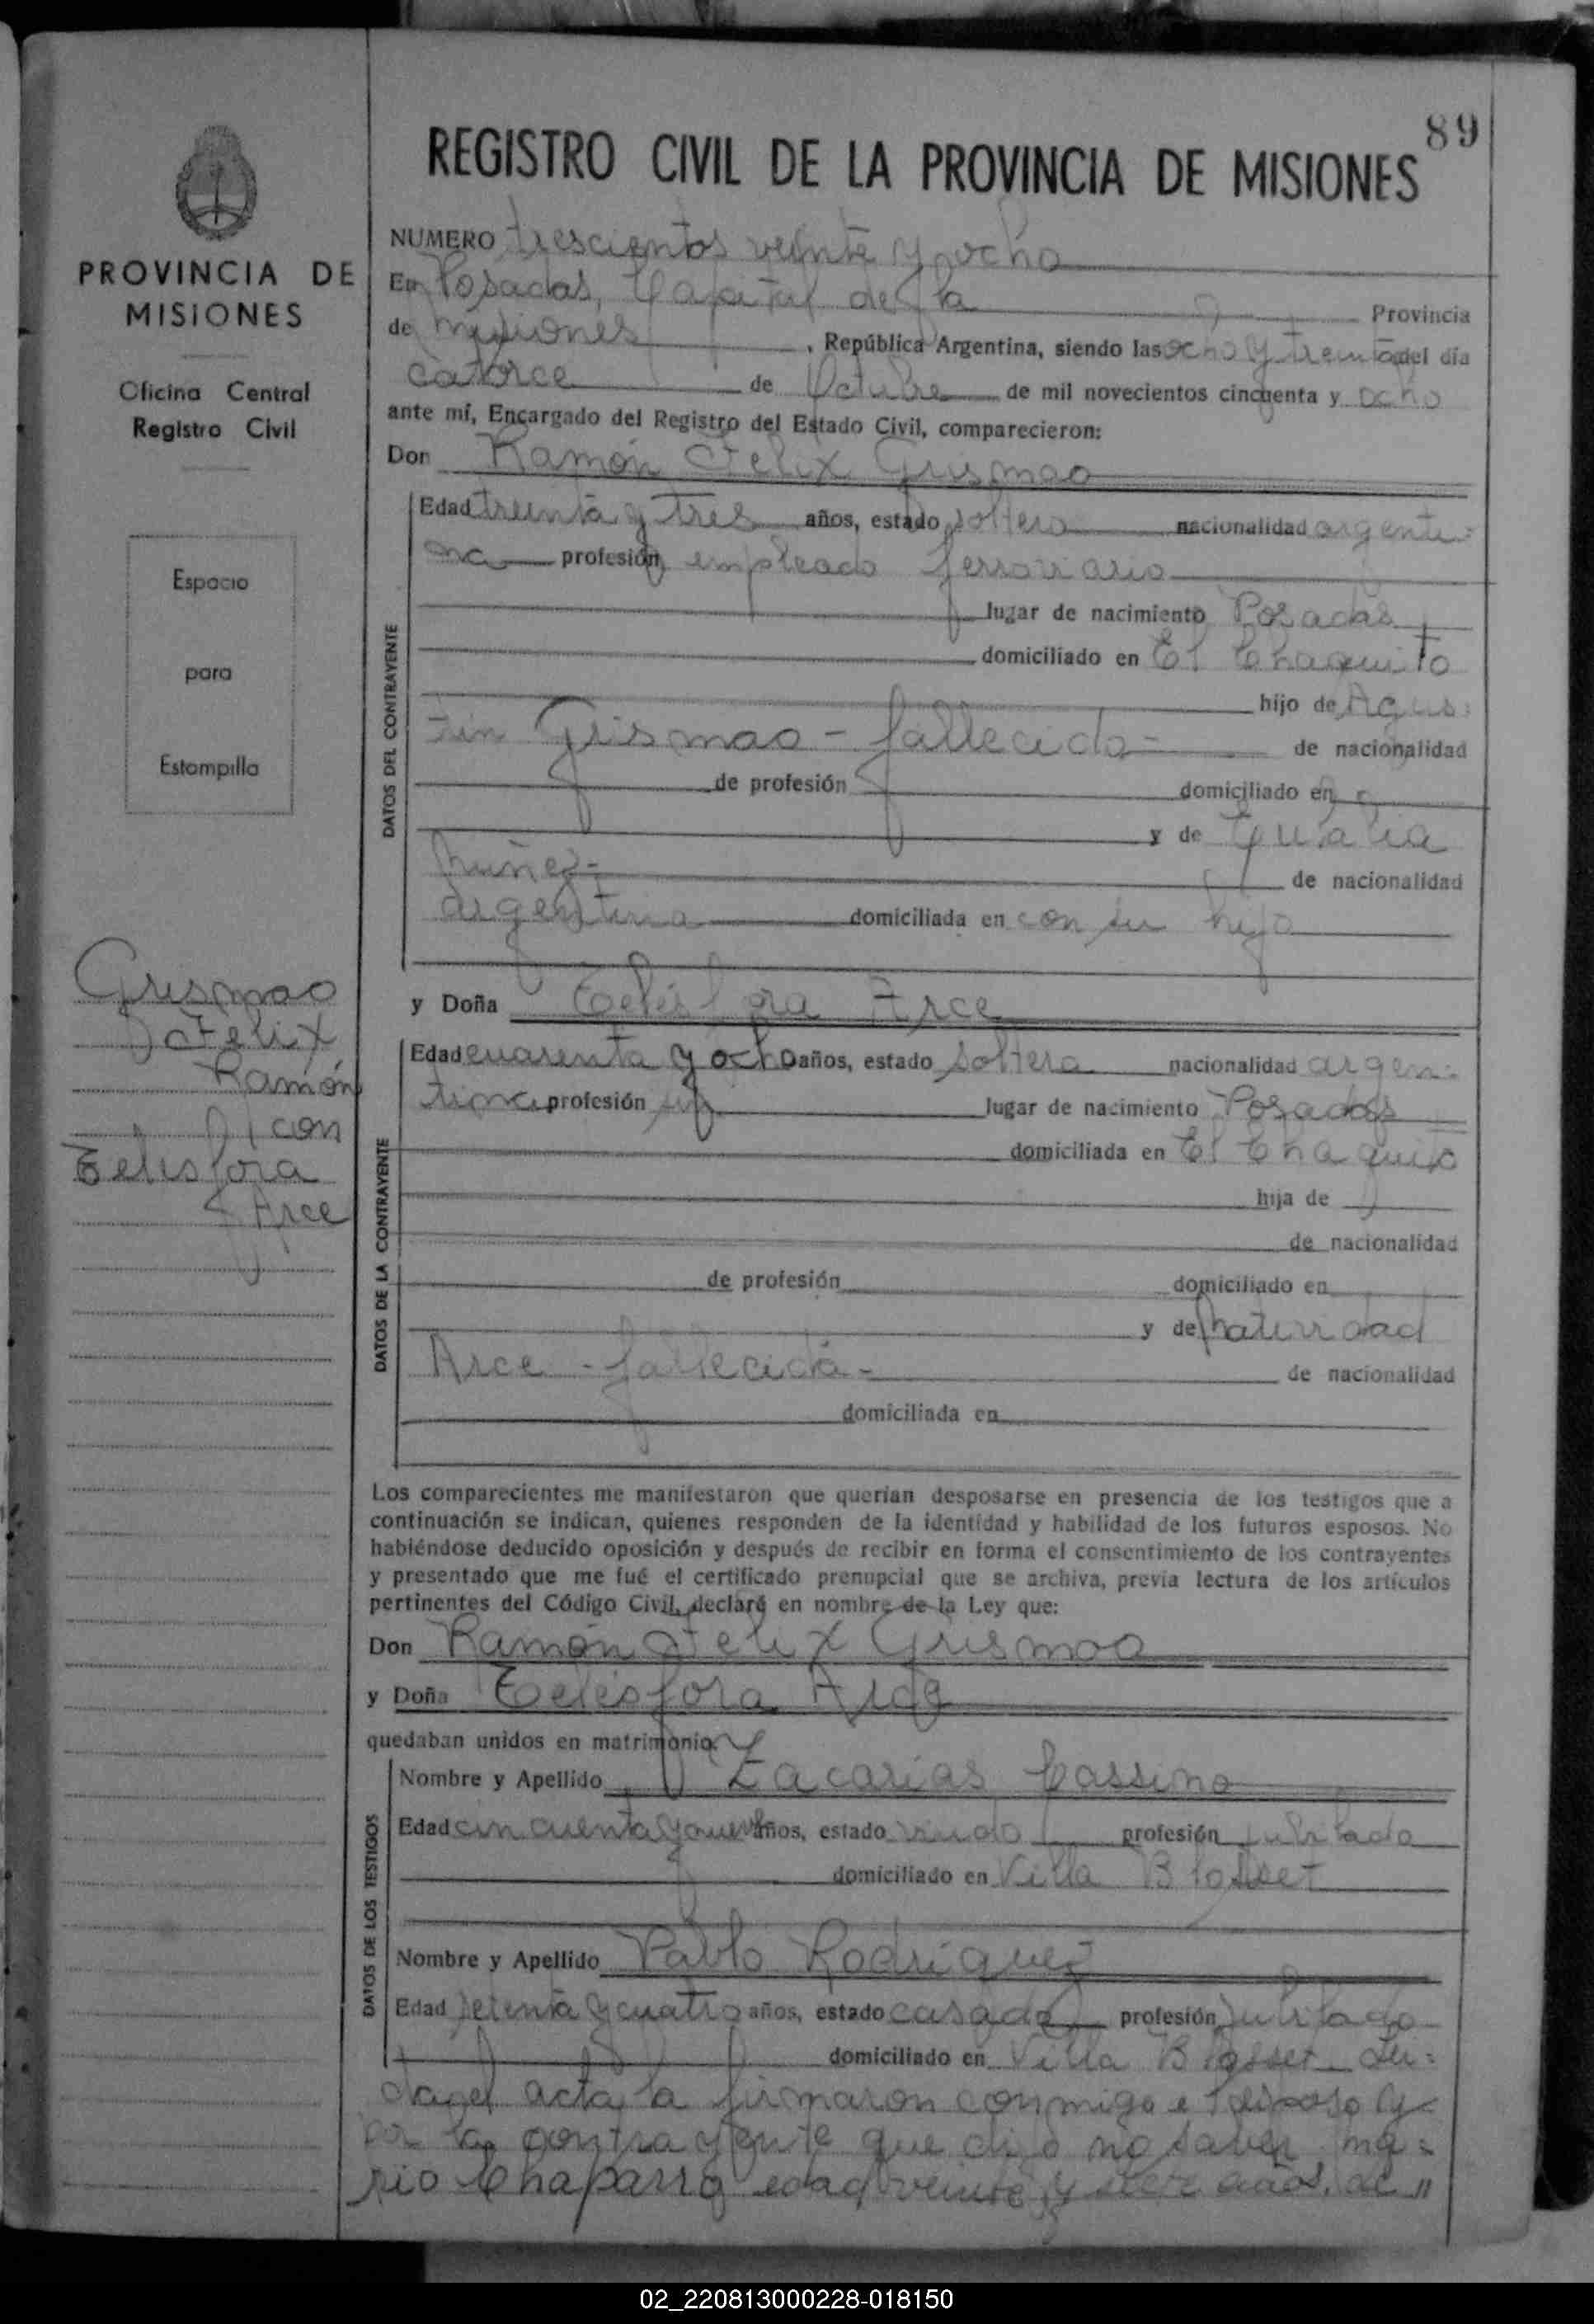 89
REGISTRO CIVIL DE LA PROVINCIA DE MISIONES
PROVINCIA DE
MISIONES
Oficina Central
Registro Civil
Espacio
para
Estampilla
Grismao
Felix
Ramón
con
Telesfora
Arce
NUMERO trescientos veinte y ocho
En Posadas, Capital de la Provincia
de Misiones, República Argentina, siendo las ocho y treinta del día
catorce de Octubre de mil novecientos cincuenta y ocho
ante mí, Encargado del Registro del Estado Civil, comparecieron:
Don Ramón Felix Grismao
DATOS DEL CONTRAYENTE
Edad treinta y tres años, estado soltero nacionalidad argenti-
na profesión empleado ferroviario
lugar de nacimiento Posadas
domiciliado en El Chaquito
hijo de Agus-
tin Grismao - fallecido - de nacionalidad
de profesión domiciliado en
y de Eulalia
Núñez - de nacionalidad
argentina domiciliada en con su hijo
y Doña Telesfora Arce
DATOS DE LA CONTRAYENTE
Edad cuarenta y ocho años, estado soltera nacionalidad argen-
tina profesión s/p lugar de nacimiento Posadas
domiciliada en El Chaquito
hija de
de nacionalidad
de profesión domiciliado en
y de Natividad
Arce - fallecida - de nacionalidad
domiciliada en
Los comparecientes me manifestaron que querían desposarse en presencia de los testigos que a
continuación se indican, quienes responden de la identidad y habilidad de los futuros esposos. No
habiéndose deducido oposición y después de recibir en forma el consentimiento de los contrayentes
y presentado que me fué el certificado prenupcial que se archiva, previa lectura de los artículos
pertinentes del Código Civil, declaré en nombre de la Ley que:
Don Ramón Felix Grismao
y Doña Telesfora Arce
quedaban unidos en matrimonio.
DATOS DE LOS TESTIGOS
Nombre y Apellido Zacarias Cassino
Edad cincuenta y nueve años, estado viudo profesión jubilado
domiciliado en Villa Blosset
Nombre y Apellido Pablo Rodriguez
Edad setenta y cuatro años, estado casado profesión jubilado
domiciliado en Villa Blosset Lei-
da el acta la firmaron conmigo el esposo y
por la contrayente que dijo no saber Ma-
rio Chaparro edad veinte y siete años, de "
02_220813000228-018150